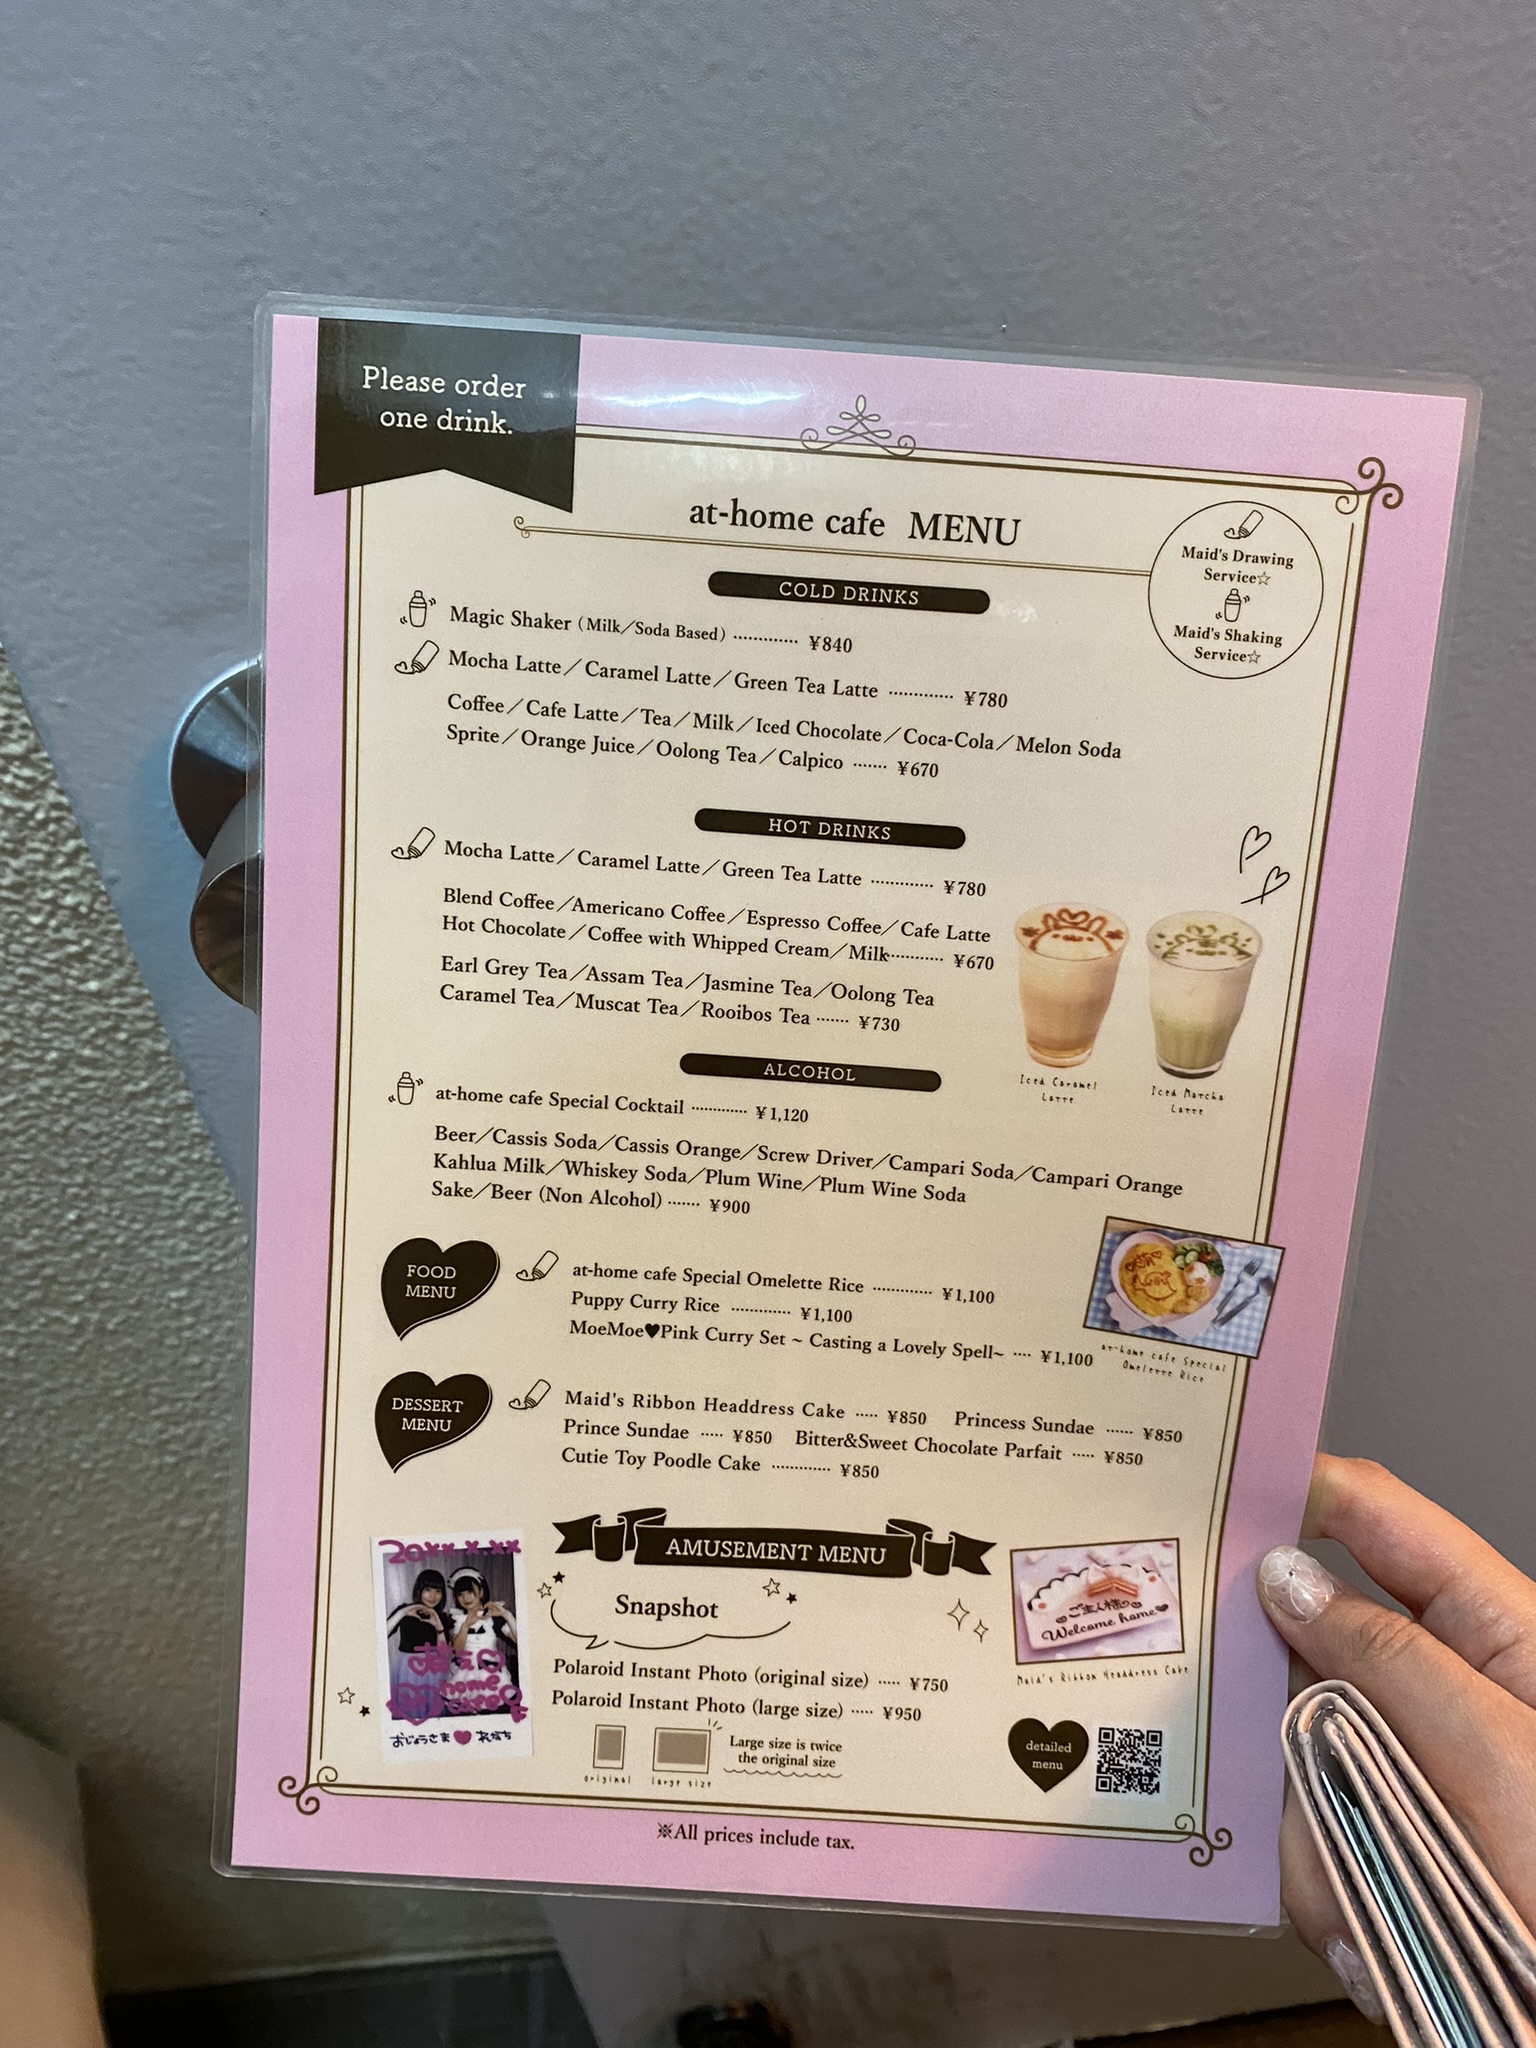 Please order
one drink.
at-home cafe MENU
Maid's Drawing
Service☆
Maid's Shaking
Service☆
COLD DRINKS
Magic Shaker (Milk／Soda Based) ············· ¥840
Mocha Latte／Caramel Latte／Green Tea Latte ············· ¥780
Coffee／Cafe Latte／Tea／Milk／Iced Chocolate／Coca-Cola／Melon Soda
Sprite／Orange Juice／Oolong Tea／Calpico ······· ¥670
HOT DRINKS
Mocha Latte／Caramel Latte／Green Tea Latte ············· ¥780
Blend Coffee／Americano Coffee／Espresso Coffee／Cafe Latte
Hot Chocolate／Coffee with Whipped Cream／Milk············ ¥670
Earl Grey Tea／Assam Tea／Jasmine Tea／Oolong Tea
Caramel Tea／Muscat Tea／Rooibos Tea ······· ¥730
Iced Caramel
Latte
Iced Matcha
Latte
ALCOHOL
at-home cafe Special Cocktail ············ ¥1,120
Beer／Cassis Soda／Cassis Orange／Screw Driver／Campari Soda／Campari Orange
Kahlua Milk／Whiskey Soda／Plum Wine／Plum Wine Soda
Sake／Beer (Non Alcohol) ······· ¥900
FOOD
MENU
at-home cafe Special Omelette Rice ············· ¥1,100
Puppy Curry Rice ············· ¥1,100
MoeMoe♥Pink Curry Set ~ Casting a Lovely Spell~ ···· ¥1,100
at-home cafe Special
Omelette Rice
DESSERT
MENU
Maid's Ribbon Headdress Cake ····· ¥850 Princess Sundae ······ ¥850
Prince Sundae ····· ¥850 Bitter&Sweet Chocolate Parfait ····· ¥850
Cutie Toy Poodle Cake ············· ¥850
AMUSEMENT MENU
Snapshot
Polaroid Instant Photo (original size) ····· ¥750
Polaroid Instant Photo (large size) ····· ¥950
original
large size
Large size is twice
the original size
20xx.x.xx
home
cafe
おじょうさま♥
ご主人様
Welcome home
Maid's Ribbon Headdress Cake
detailed
menu
※All prices include tax.